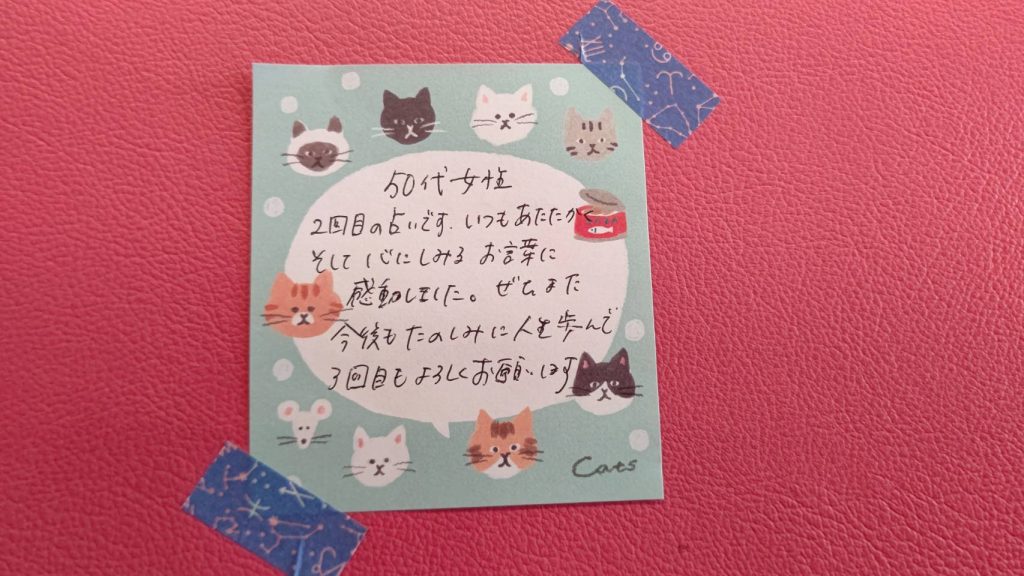 50代女性
2回目の占いです。いつもあたたかく
そして心にしみるお言葉に
感動しました。ぜひまた
今後もたのしみに人生歩んで
3回目もよろしくお願いします
Cats